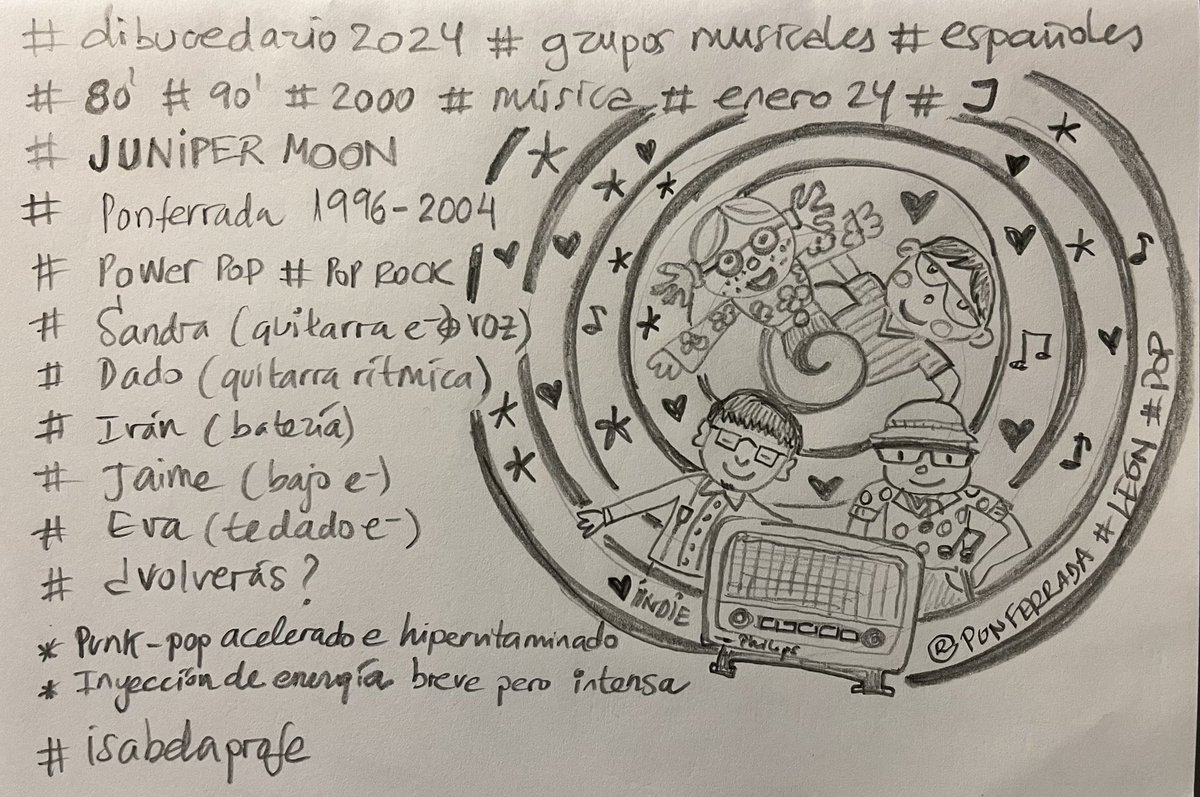 # dibucedario 2024 # grupos musicales # españoles
# 80' # 90' # 2000 # música # enero 24 # J
# JUNIPER MOON
# Ponferrada 1996-2004
# Power Pop # Pop Rock
# Sandra (guitarra e- voz)
# Dado (guitarra rítmica)
# Irán (batería)
# Jaime (bajo e-)
# Eva (teclado e-)
# ¿volverás?
* Punk-pop acelerado e hipervitaminado
* Inyección de energía breve pero intensa
# isabelaprofe
INDIE
Philips
® PONFERRADA # LEÓN # POP